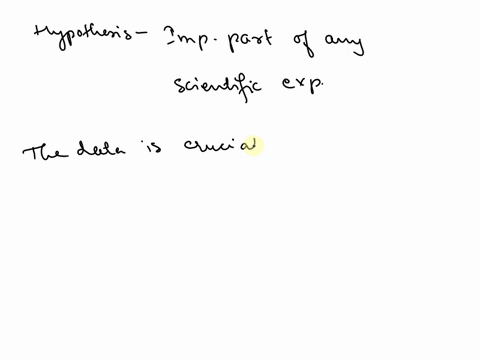 Hypothesis - Imp. part of any
scientific exp.
The data is crucial